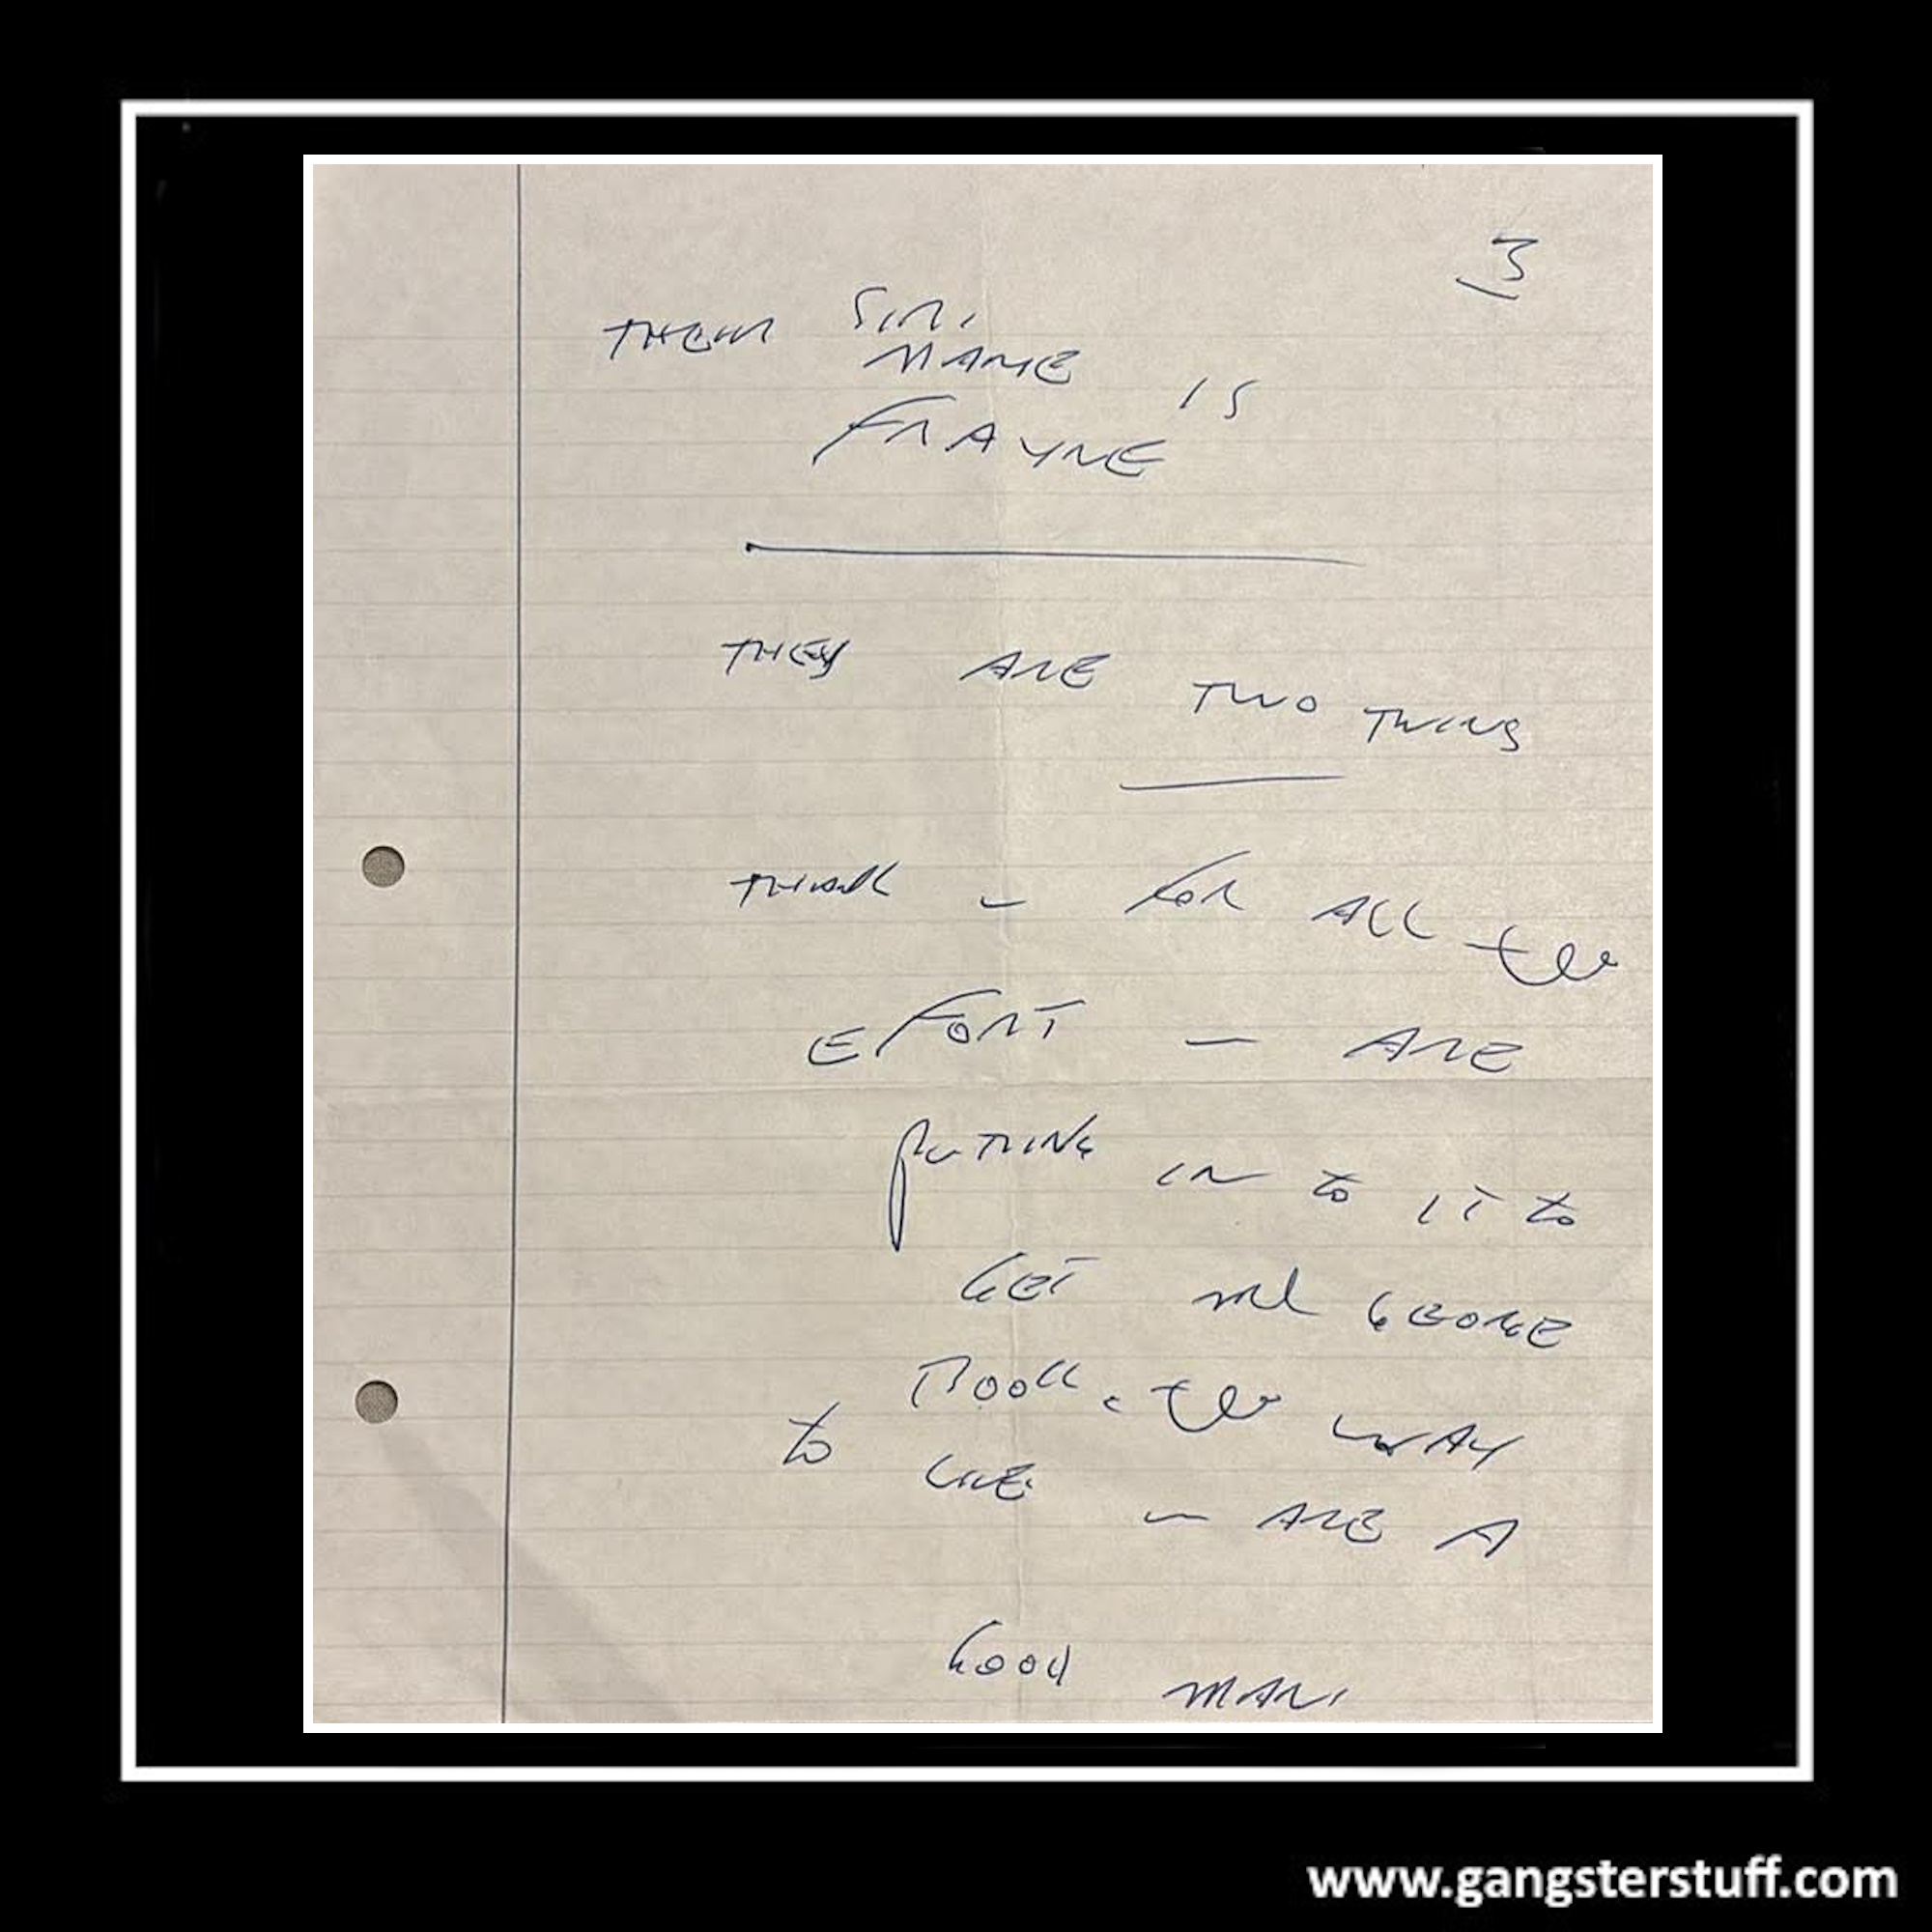 3
THEIR SIR.
NAME IS
FRAYNE
THEY ARE TWO TWINS
THANK U FOR ALL the
EFORT U ARE
PUTTING IN to IT to
GET me GEORGE
BOOK. the WAY
to LIVE U ARE A
GOOD MAN.
www.gangsterstuff.com